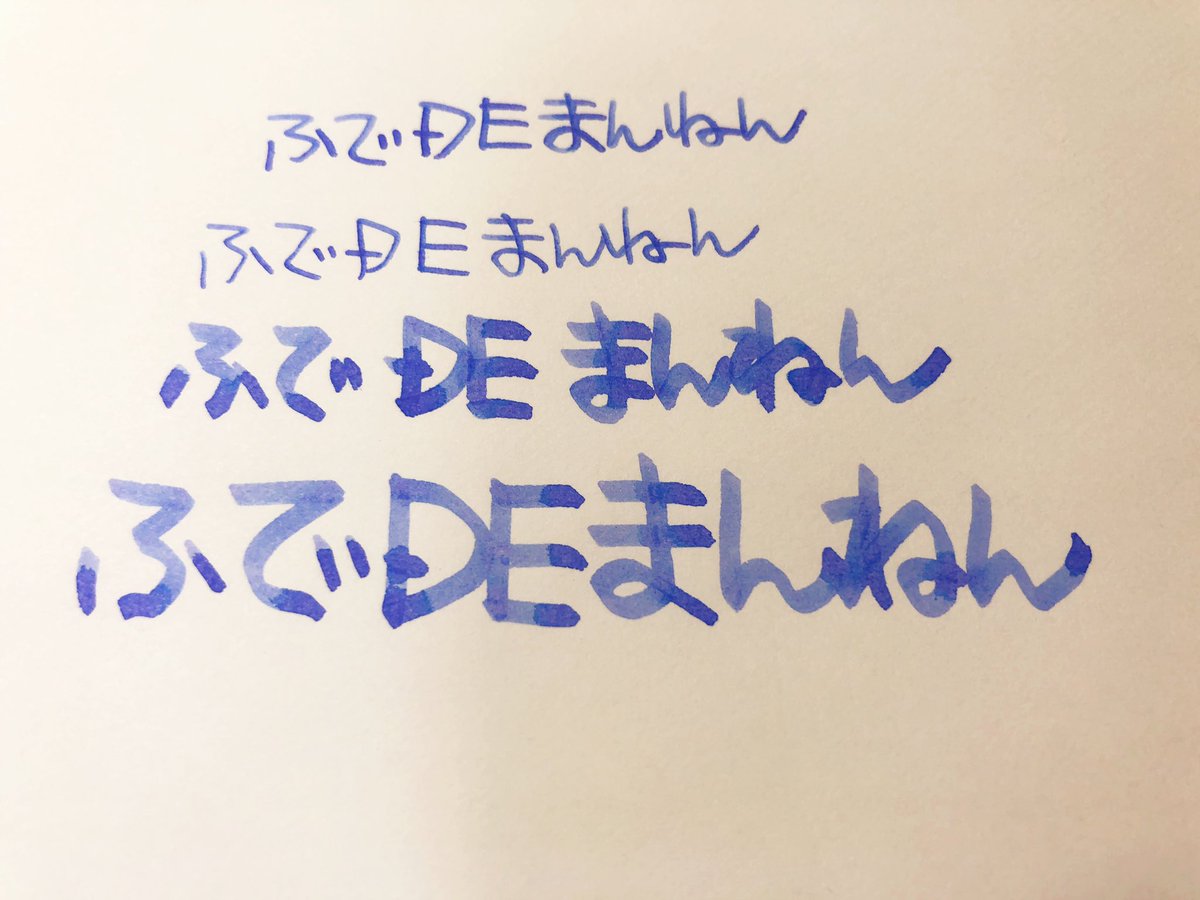 ふでDEまんねん
ふでDEまんねん
ふでDEまんねん
ふでDEまんねん